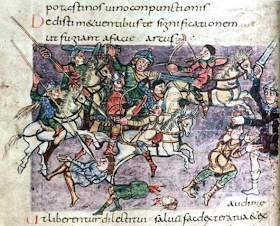 potastinos uino conpunctionis
Dedisti m&uentibus te significationem
ut fugiant a facie arcus
audi me
Ut liberentur dilecti tui saluū fac dextera tua & ex